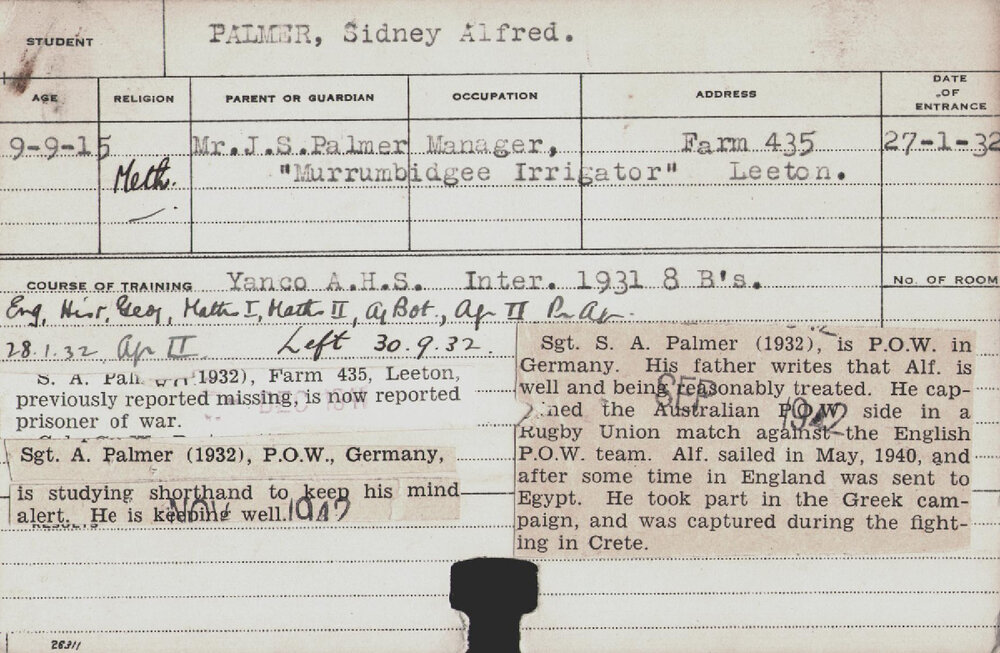 STUDENT PALMER, Sidney Alfred.
AGE RELIGION PARENT OR GUARDIAN OCCUPATION ADDRESS DATE OF ENTRANCE
9-9-15 Meth. Mr.J.S.Palmer Manager, Farm 435 27-1-32
"Murrumbidgee Irrigator" Leeton.
COURSE OF TRAINING Yanco A.H.S. Inter. 1931 8 B's. No. OF ROOM
Eng, Hist, Geog, Maths I, Maths II, Ag Bot., Agr II Pr Agr.
28.1.32 Agr II. Left 30.9.32.
S. A. 1932), Farm 435, Leeton,
previously reported missing, is now reported
prisoner of war.
DEC 1941
Sgt. A. Palmer (1932), P.O.W., Germany,
is studying shorthand to keep his mind
alert. He is keeping well.
NOV 1942
RESULTS
Sgt. S. A. Palmer (1932), is P.O.W. in
Germany. His father writes that Alf. is
well and being reasonably treated. He cap-
ned the Australian P.O.W. side in a
Rugby Union match against the English
P.O.W. team. Alf. sailed in May, 1940, and
after some time in England was sent to
Egypt. He took part in the Greek cam-
paign, and was captured during the fight-
ing in Crete.
SEP 1942
26311